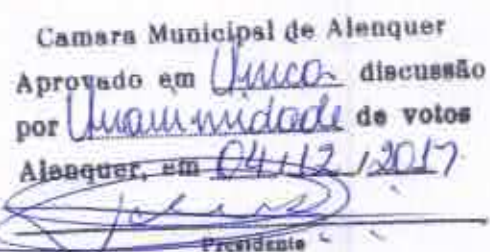 Camara Municipal de Alenquer
Aprovado em Única discussão
por Unanimidade de votos
Alenquer, em 04/12/2017.
Presidente